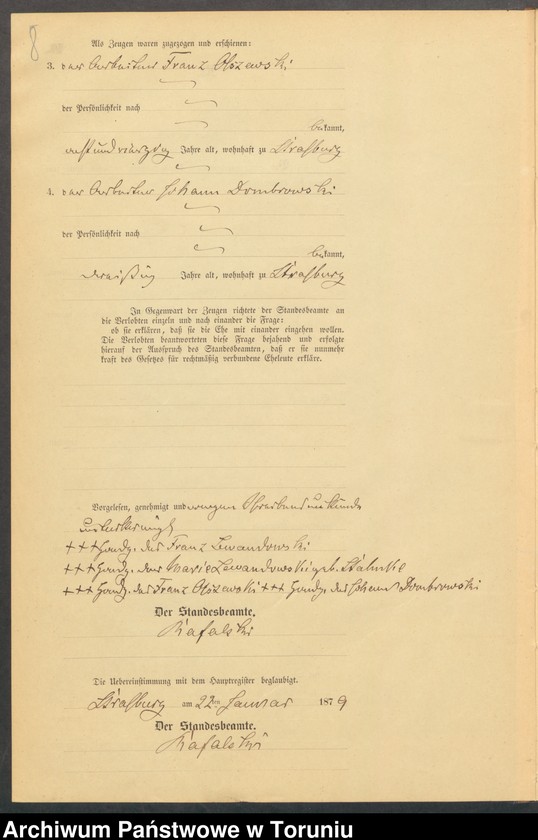 8
Als Zeugen waren zugezogen und erschienen:
3. der Arbeiter Franz Olszewski
der Persönlichkeit nach
bekannt,
achtundvierzig Jahre alt, wohnhaft zu Straßburg
4. der Arbeiter Johann Dombrowski
der Persönlichkeit nach
bekannt,
dreißig Jahre alt, wohnhaft zu Straßburg
In Gegenwart der Zeugen richtete der Standesbeamte an
die Verlobten einzeln und nach einander die Frage:
ob sie erklären, daß sie die Ehe mit einander eingehen wollen.
Die Verlobten beantworteten diese Frage bejahend und erfolgte
hierauf der Ausspruch des Standesbeamten, daß er sie nunmehr
kraft des Gesetzes für rechtmäßig verbundene Eheleute erkläre.
Vorgelesen, genehmigt und wegen Schreibensunkunde
unterkreuzt
+++ Handz. des Franz Lewandowski
+++ Handz. der Marie Lewandowski geb. Stahnke
+++ Handz. des Franz Olszewski +++ Handz. des Johann Dombrowski
Der Standesbeamte.
Rafalski
Die Uebereinstimmung mit dem Hauptregister beglaubigt.
Straßburg am 22ten Januar 1879
Der Standesbeamte.
Rafalski
Archiwum Państwowe w Toruniu